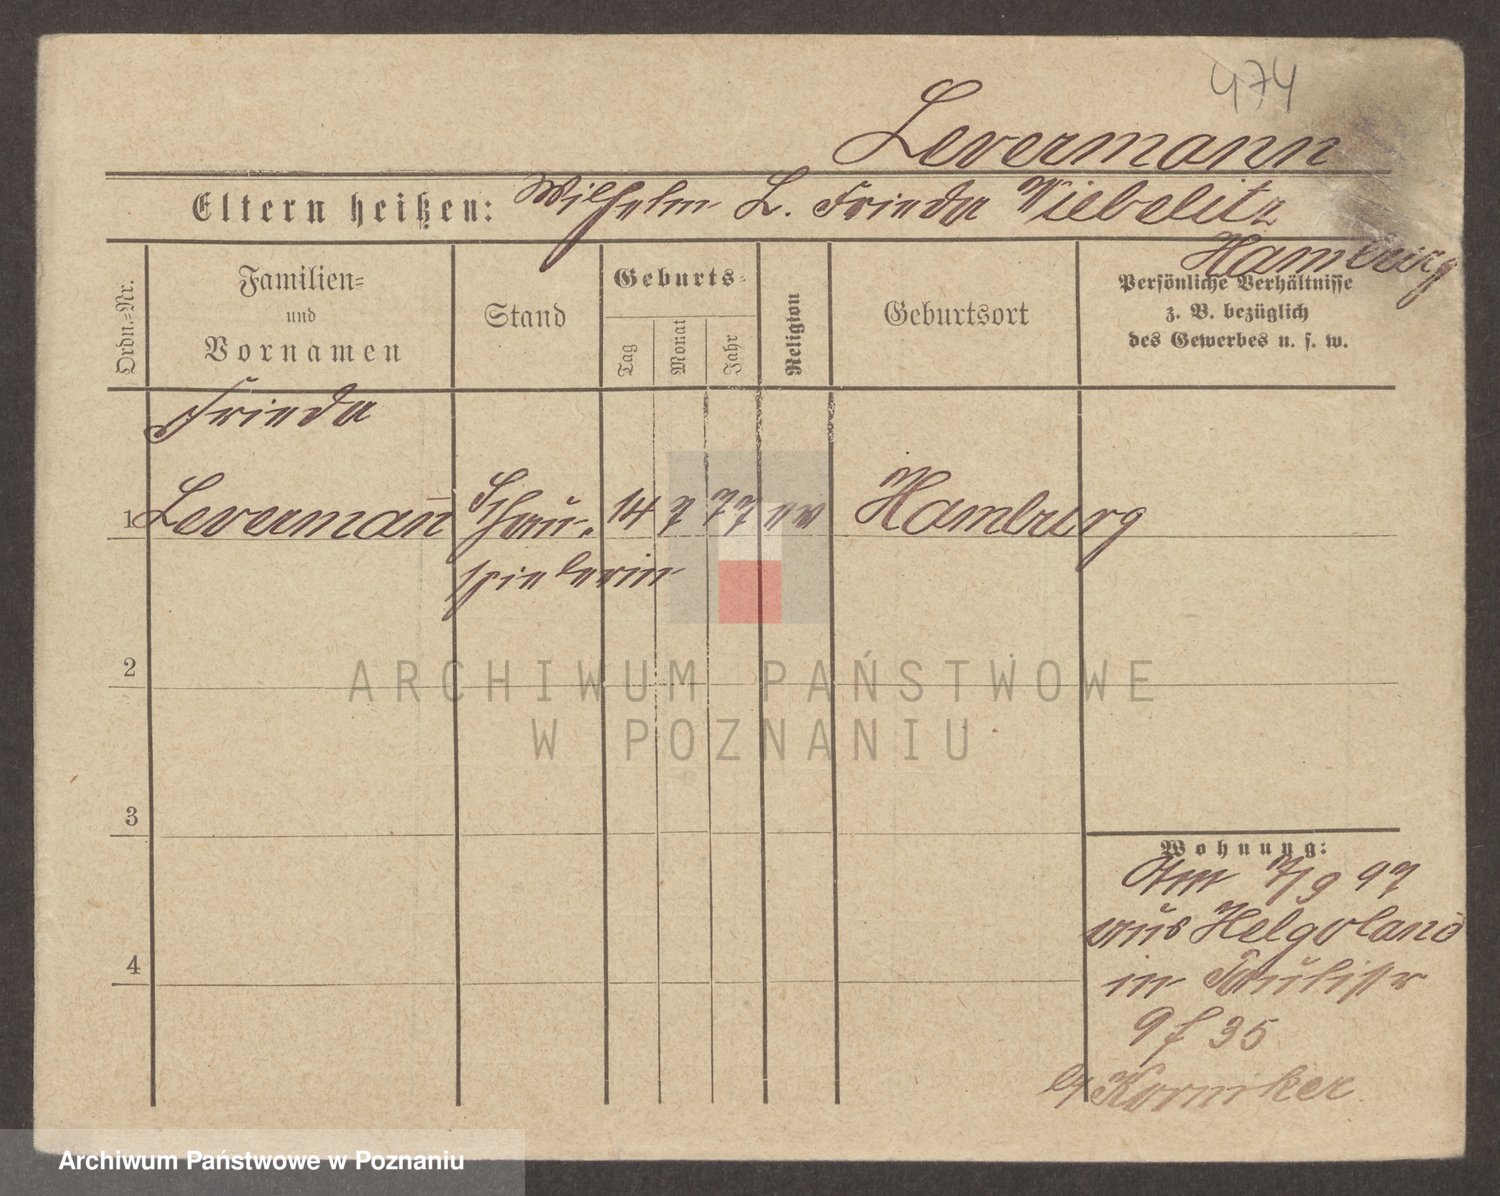 474
Levermann
Eltern heißen: Wilhelm L. Frieda Wiebelitz
Hamburg
Ordn.-Nr.
Familien-
und
Vornamen
Stand
Geburts-
Tag
Monat
Jahr
Religion
Geburtsort
Persönliche Verhältnisse
z. B. bezüglich
des Gewerbes u. s. w.
Frieda
1 Levermañ Schau- 14 7 77 ev Hamburg
spielerin
2
ARCHIWUM PAŃSTWOWE
W POZNANIU
3
Wohnung:
Am 7/9 97
aus Helgoland
in Paulistr
4
9 f 35
Korniker
Archiwum Państwowe w Poznaniu